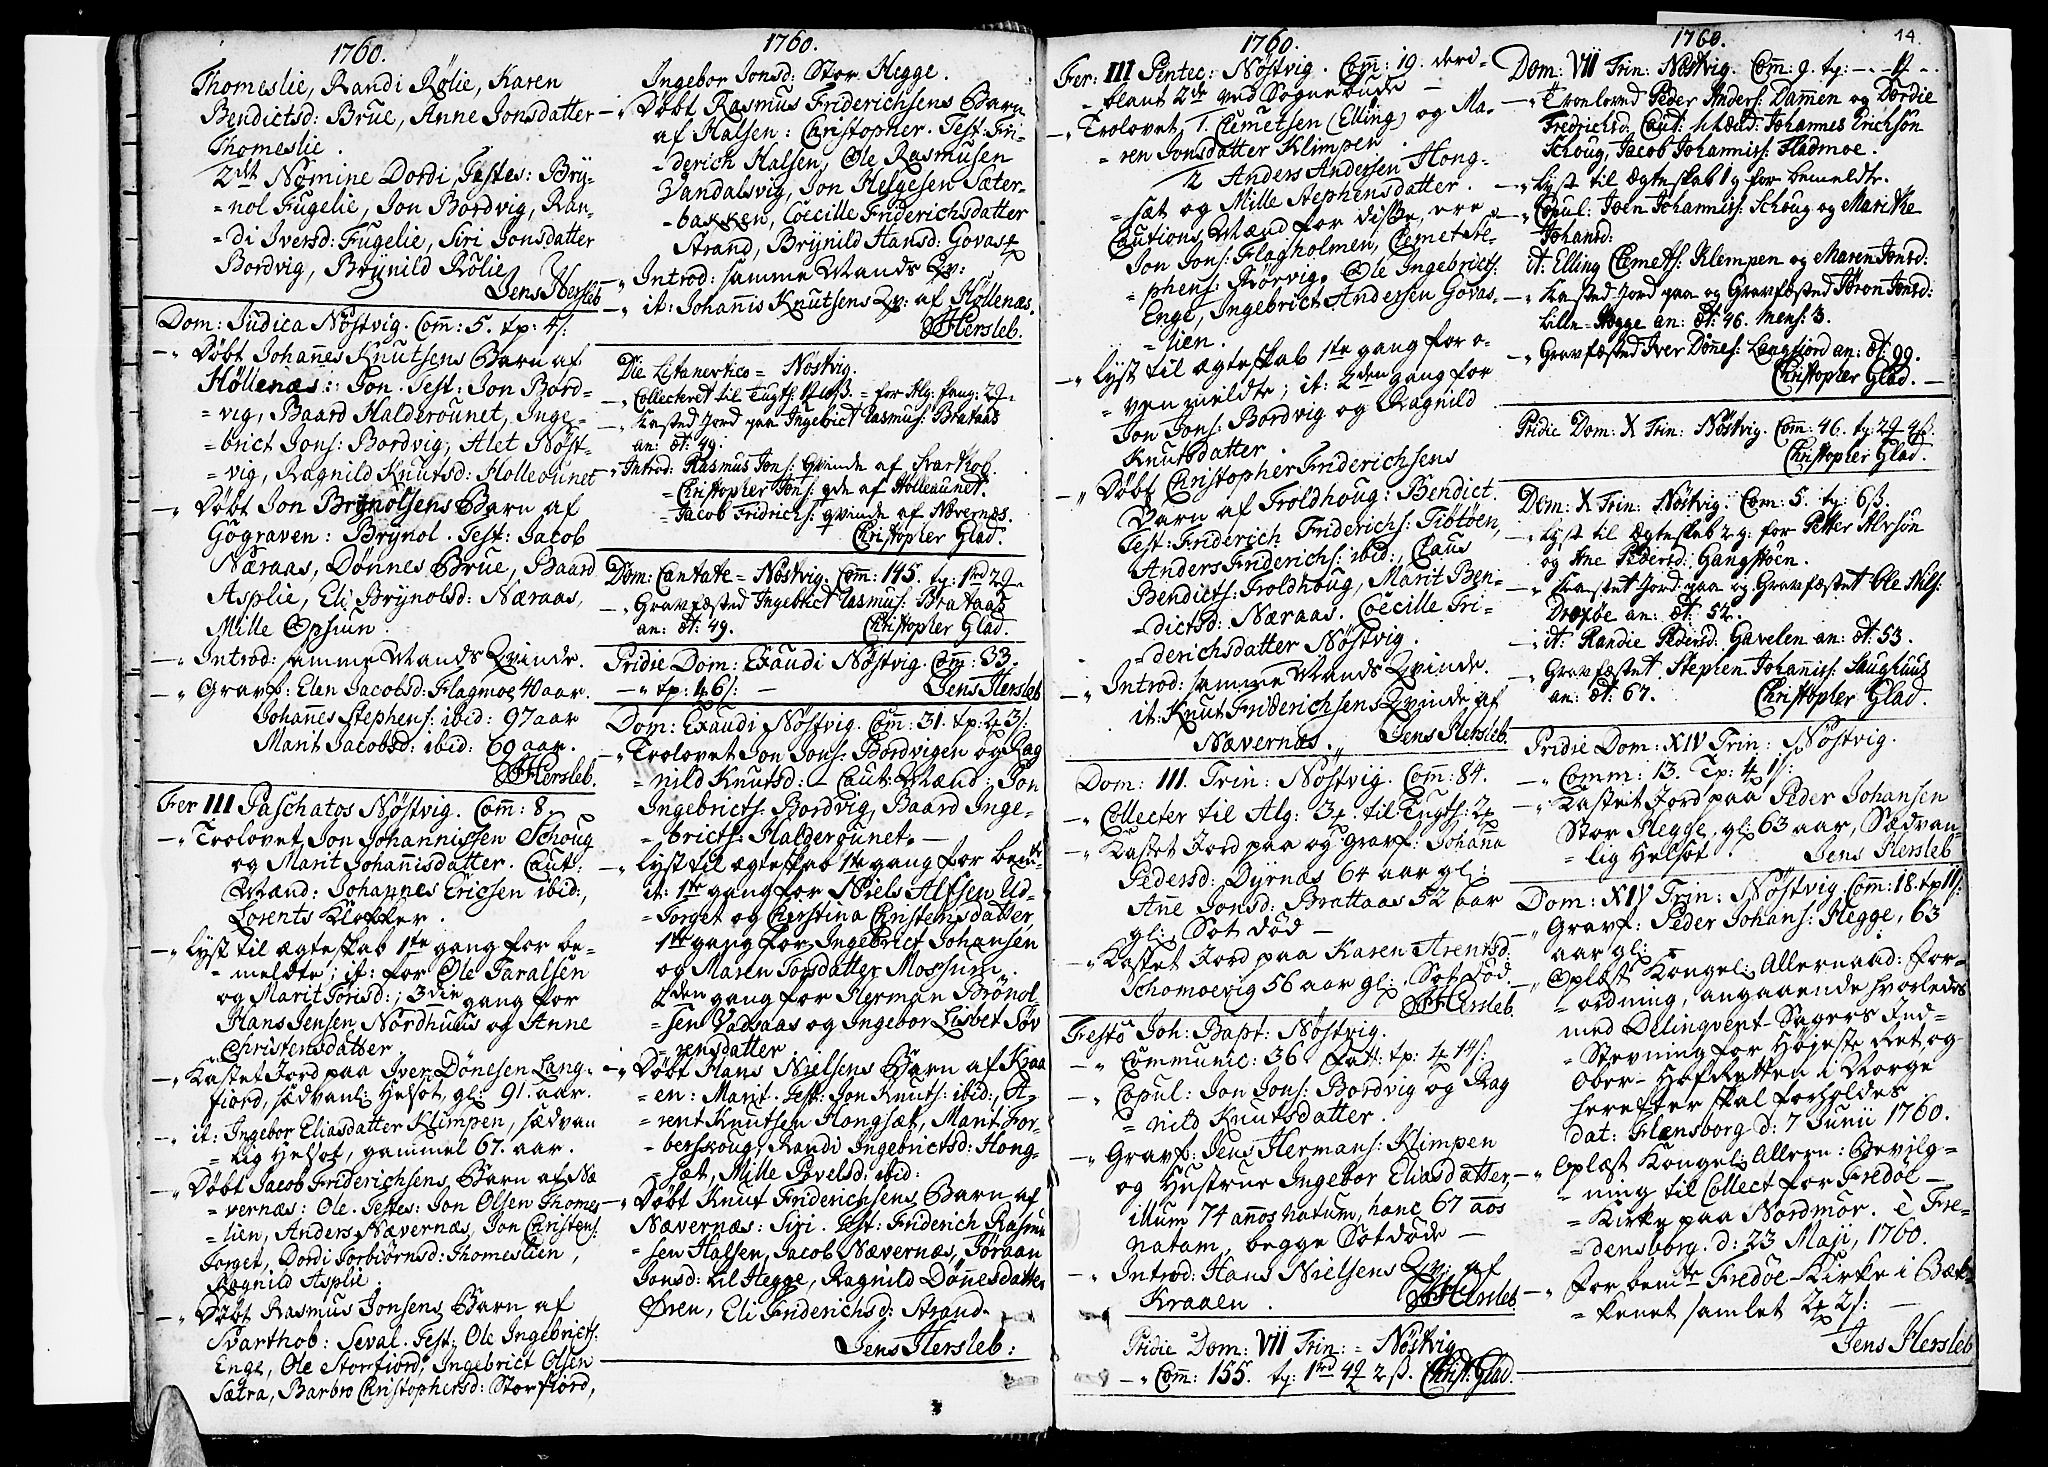 1760.
Thomeslie, Randi Rølie, Karen
Bendictsd: Brue, Anne Jonsdatter
Thomeslie.
2det Nomine Dordi, Testes: Bry-
=nol Fugelie, Jon Bordvig, Ran-
=di Iversd: Fugelie, Siri Jonsdatter
Bordvig, Brÿnild Rølie
Jens Hersleb
Dom: Judica Nøstvig. Com: 5. tp: 4 s:
—„ Døbt Johannes Knutsens Barn af
Høllenæs: Jon. Test: Jon Bord-
=vig, Baard Halderounet, Inge-
=brict Jons: Bordvig, Alet Nøst-
=vig, Ragnild Knutsd: Holleounet
—„ Døbt Jon Brynolsens Barn af
Gøgraven: Brÿnol. Test: Jacob
Næraas, Dønnes Brue, Baard
Asplie, Eli Brÿnolsd: Næraas,
Mille Opsiun.
—„ Introd: samme Mands Qvinde.
—„ Gravf: Elen Jacobsd: Flagmoe 40 aar.
Johannes Stephens: ibid: 97 aar
Marit Jacobsd: ibid: 69 aar.
JHersleb.
Fer III Paschatos Nøstvig. Com: 8.
—„ Trolovet Jon Johannissen Schoug
og Marit Johannisdatter. Caut:
Mænd: Johannes Ericsen ibid:,
Lorents Klokker.
—„ Lyst til ægteskab 1ste gang for be-
=meldte; it: for Ole Taralsen
og Marit Torisd:; 3die gang for
Hans Jensen Nordhuus og Anne
Christensdatter
—„ Kastet Jord paa Iver Dönesen Lang-
fiord, sædvanl: Helsot, gl: 91. aar.
—„ it: Ingebor Eliasdatter Klimpen, sædvan
=lig Helsot, gammel 67. aar.
—„ Døbt Jacob Friderichsens Barn af Næ
=vernæs: Ole. Testes: Jon Olsen Thomes
=lien, Anders Nævernæs, Jon Christens:
Torget, Dordi Torbiörnsd: Thomeslien,
Ragnild Asplie.
—„ Døbt Rasmus Jonsens Barn af
Svarthob: Seval. Test: Ole Ingebricts:
Enge, Ole Storfiord, Ingebrict Olsen
Sætra, Barbro Christophersd: Storfiord,
1760.
Ingebor Jonsd: Stor Hegge.
—„ Døbt Rasmus Friderichsens Barn
af Halsen: Christopher. Test: Fri-
=derich Halsen, Ole Rasmusen
Vandalsvig, Jon Helgesen Sæter-
=bakken, Coecille Friderichsdatter
Strand, Brÿnild Hansd: Govas-
—„ Introd: samme Mands Qv:
—„ it: Johannis Knutsens Qv: af Høllenæs.
JHersleb.
Die Litanevtico = Nøstvig.
—„ Kasted Jord paa Ingebrict Rasmus: Brataas
an: æt: 49.
—„ Introd: Rasmus Jons: Qvinde af Svarthob.
=Christopher Jons: qde af Holleaunet.
=Jacob Fridrichs: qvinde af Növernæs.
Christopher Glad.
Dom: Cantate = Nøstvig. Com: 145.
—„ Gravfæsted Ingebrict Rasmus: Brataas
an: æt: 49. Christopher Glad.
Pridie Dom: Exaudi Nøstvig Com: 33.
Jens Hersleb
Dom: Exaudi Nøstvig. Com: 31.
—„ Trolovet Jon Jons: Bordvigen og Rag
=nild Knutsd: — Caut: Mænd: Jon
Ingebricts: Bordvig, Baard Inge-
=bricts: Halderounet. —
—„ Lyst til ægteskab 1ste gang for bemte
it: 1ste gang for Niels Alfsen Ud-
=Torget og Cherstina Christensdatter,
1ste gang for Ingebrict Johansen
og Maren Torsdatter Mossum.
2den gang for Herman Brönol-
=sen Vadsaas og Ingebor Lisbet Söv
rensdatter
—„ Døbt Hans Nielsens Barn af Kraa
=en: Marit. Test: Jon Knuts: ibid:, A-
=rent Knutsen Hongsæt, Marit Tor-
=berskoug, Randi Ingebrictsd: Hong-
=sæt, Mille Povelsd: ibid:
—„ Døbt Knut Friderichsens Barn af
Nævernæs: Siri. Test: Friderich Rasmu
=sen Halsen, Jacob Nævernæs, Jöraan
Jonsd: Lil Hegge, Ragnild Dönnesdatter
Øren, Eli Friderichsd: Strand.
Jens Hersleb:
1760.
Fer: III Pentec: Nøstvig. Com: 19. deri-
=blant 2de ved Sognebude —
—„ Trolovet 1. Clemetsen (Elling) og Ma-
=ren Jonsdatter Klimpen.
2 Anders Andersen Hong-
=sæt og Mille Stephensdatter.
Cautions Mænd for disse, ere
Jon Jons: Flagholmen, Clemet Ste-
=phens: Rörvig. Ole Ingebricts:
Enge, Ingebrict Andersen Govas-
=lien.
—„ Lyst til ægteskab 1ste gang for o-
=ven meldte; it: 2den gang for
Jon Jons: Bordvig og Ragnild
Knutsdatter.
—„ Døbt Christopher Friderichsens
Barn af Troldhoug: Bendict.
Test: Friderich Friderichs: Tiötöen,
Anders Friderichs: ibid:, Claus
Bendicts: Troldhoug, Marit Ben-
=dictsd: Næraas. Coecille Fri-
=derichsdatter Nøstvig.
—„ Introd: samme Mands Qvinde.
it: Knut Friderichsens Qvinde af
Nævernæs. Jens Hersleb.
Dom: III. Trin: Nøstvig. Com: 84.
—„ Kastet Jord paa og gravf: Johana
Pedersd: Dyrnas 64 aar gl:
Anne Jonsd: Brattaas 52 aar
gl: Sot død —
—„ Kastet Jord paa Karen Arentsd:
Schomoevig 56 aar gl:, Sot død.
JHersleb.
Festo Joh: Bapt: Nøstvig.
—„ Communic: 36
—„ Copul: Jon Jons: Bordvig og Rag
=nild Knutsdatter.
—„ Gravf: Jens Hermans: Klimpen
og Hustrue Ingebor Eliasdatter,
illum 74 annos natum, hanc 67 aos
natam, begge Sotdøde —
—„ Introd: Hans Nielsens Qv: af
Kraaen. JHersleb.
Pridie Dom: VII Trin: = Nøstvig
—„ Com: 155. tp: 1rd 4 2 ß. Christ: Glad.
1760.
14.
Dom: VII Trin: Nøstvig. Com: 9.
—„ Troloved Peder Anders: Dammen og Dordie
Fredrichsd. Caut: Mæd: Johannes Erichsön
Schoug, Jacob Johanniss: Fladmoe.
—„ Lyst til Ægteskab 1 g for bemeldte.
—„ Copul: Joen Johanniss: Schoug og Marithe
Johansd:
it: Elling Clemets: Klempen og Maren Jonsd:
—„ Kasted Jord paa og Gravfæsted Jöron Jonsd:
Lille-Hegge an: æt: 46. Mens: 3.
—„ Gravfæsted Iver Dönnes: Langfiord an: æt: 99.
Christopher Glad. —
Pridie Dom: X Trin: Nøstvig. Com: 46.
Christopher Glad.
Dom: X Trin: Nøstvig. Com: 5. tp: 6 ß.
—„ Lyst til Ægteskab 2 g: for Petter Alvsön
og Ane Pedersd: Gangstöen.
—„ Kastet Jord paa og Gravfæstet Ole Nils:
an: æt: 52.
—„ it: Randie Pedersd: Gavelen an: æt: 53.
—„ Gravfæstet Stephen Johannis: Saughuus
an: æt: 67. Christopher Glad.
Pridie Dom: XIV Trin: Nøstvig.
—„ Comm: 13.
—„ Kastet Jord paa Peder Johansen
Stor Hegge, gl: 63 aar, Sædvan-
=lig Helsot. Jens Hersleb
Dom: XIV Trin: Nøstvig. Com: 18.
—„ Gravf: Peder Johans: Hegge, 63
aar gl:
—„ Oplæst Kongel: Allernaad: For-
=ordning, angaaende hvorledes
med Delinqvent-Sagers Ind-
=Stevning for Højeste Ret og
Ober-HofRetten i Norge
herefter skal forholdes
dat: Flensborg d: 7 Junii 1760.
—„ Oplæst Kongel: Allern: Bevilg-
=ning til Collect for Fredöe —
=Kirke paa Nordmör. è Fre-
=densborg. d: 23 Maji, 1760.
—„ For bemte Fredöe-Kirke i Bæk-
=kenet samlet
Jens Hersleb